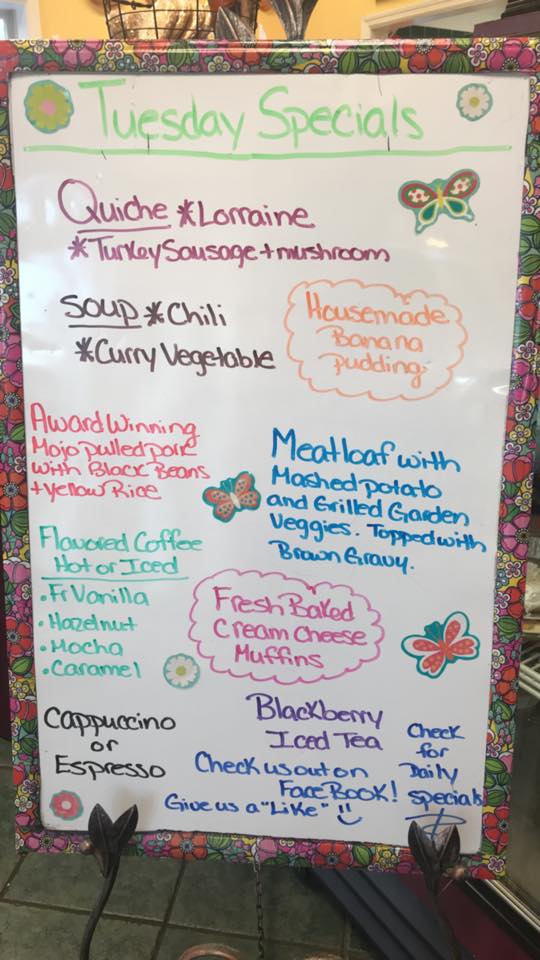 Tuesday Specials
Quiche *Lorraine
*Turkey Sausage + mushroom
Soup *Chili
*Curry Vegetable
Housemade
Banana
Pudding
Award Winning
Mojo pulled pork
with Black Beans
+ Yellow Rice
Meatloaf with
Mashed potato
and Grilled Garden
Veggies. Topped with
Brown Gravy.
Flavored Coffee
Hot or Iced
• Fr Vanilla
• Hazelnut
• Mocha
• Caramel
Fresh Baked
Cream Cheese
Muffins
Cappuccino
or
Espresso
Blackberry
Iced Tea
Check us out on
FaceBook!
Give us a "Like"
Check
for
Daily
specials